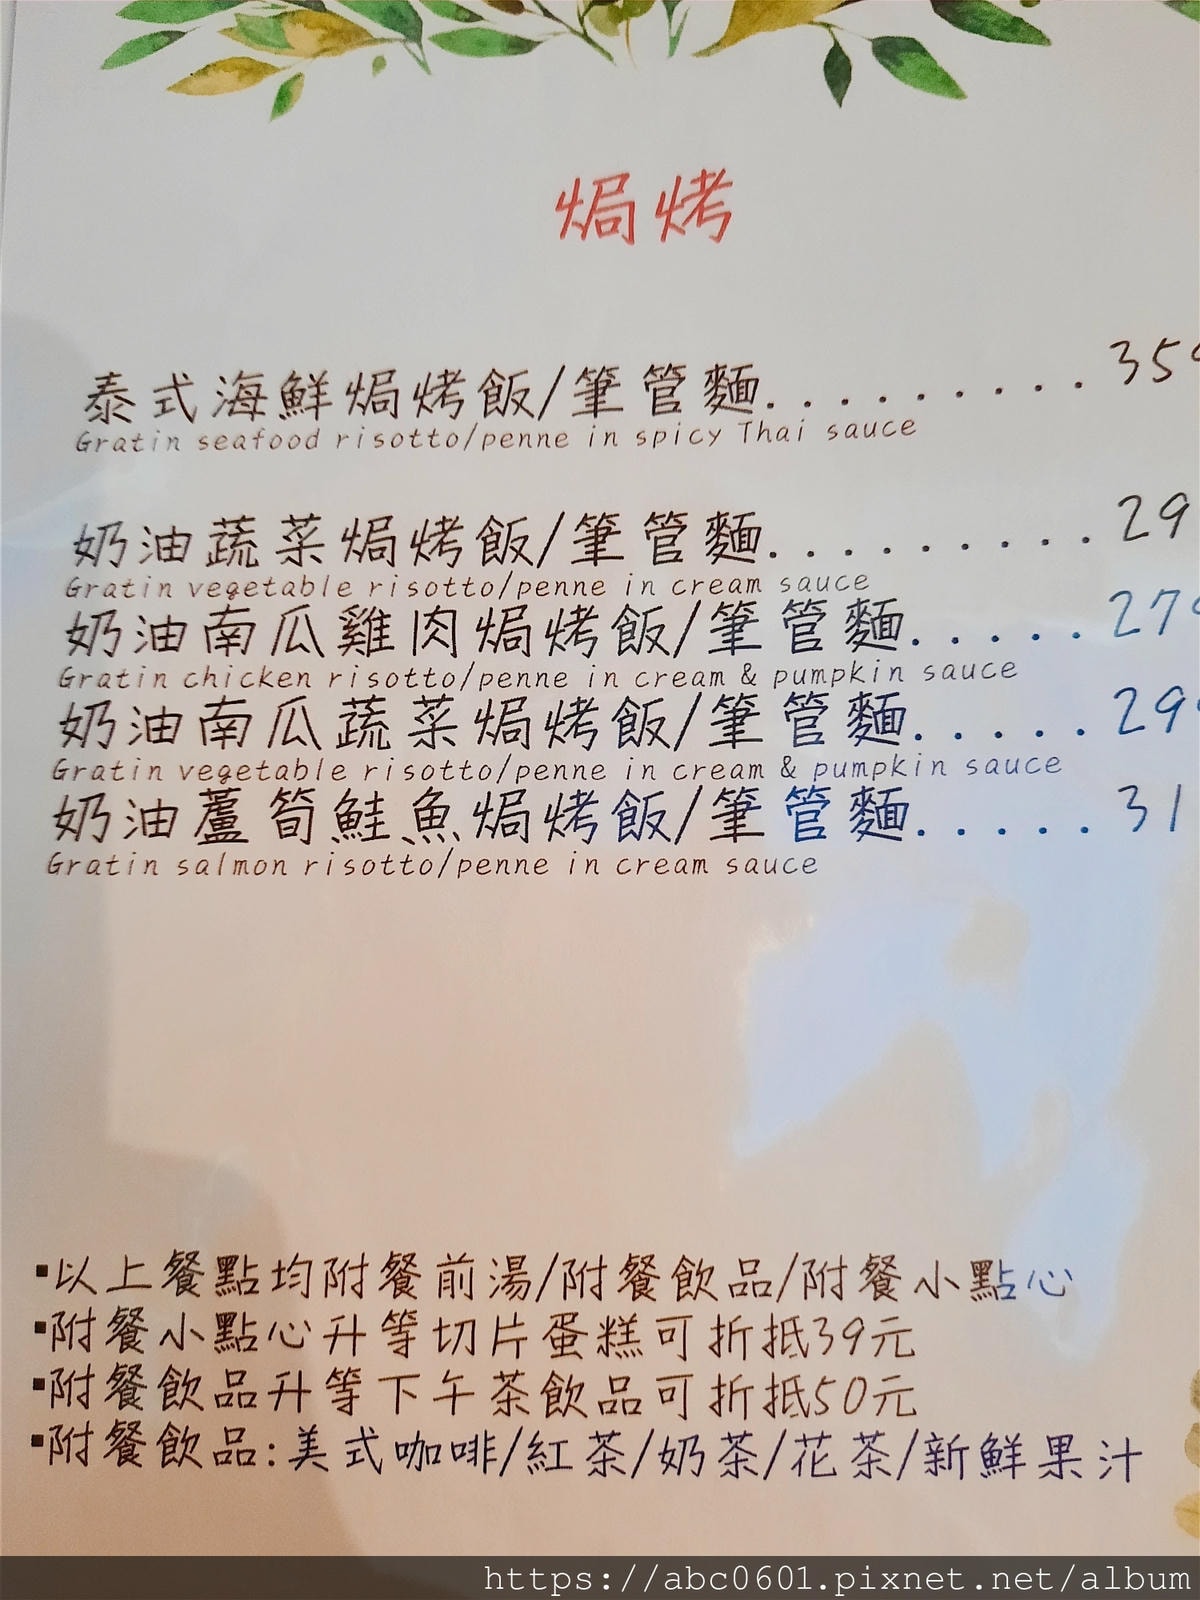 焗烤
泰式海鮮焗烤飯/筆管麵.......... 35
Gratin seafood risotto/penne in spicy Thai sauce
奶油蔬菜焗烤飯/筆管麵.......... 29
Gratin vegetable risotto/penne in cream sauce
奶油南瓜雞肉焗烤飯/筆管麵..... 27
Gratin chicken risotto/penne in cream & pumpkin sauce
奶油南瓜蔬菜焗烤飯/筆管麵..... 29
Gratin vegetable risotto/penne in cream & pumpkin sauce
奶油蘆筍鮭魚焗烤飯/筆管麵..... 31
Gratin salmon risotto/penne in cream sauce
▪以上餐點均附餐前湯/附餐飲品/附餐小點心
▪附餐小點心升等切片蛋糕可折抵39元
▪附餐飲品升等下午茶飲品可折抵50元
▪附餐飲品:美式咖啡/紅茶/奶茶/花茶/新鮮果汁
https://abc0601.pixnet.net/album